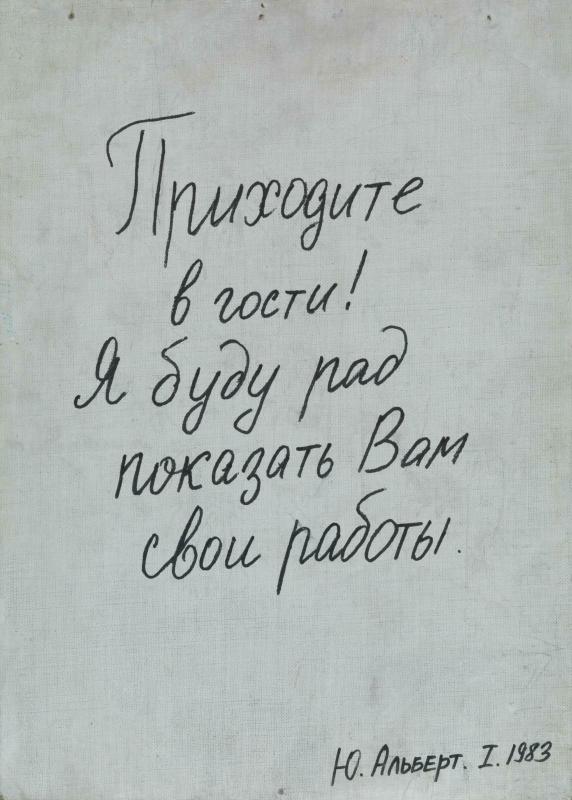 Приходите
в гости!
Я буду рад
показать Вам
свои работы.
Ю. Альберт. I. 1983